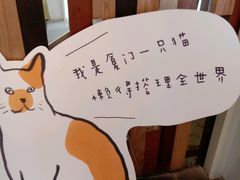 我是厦门一只猫
懒得搭理全世界